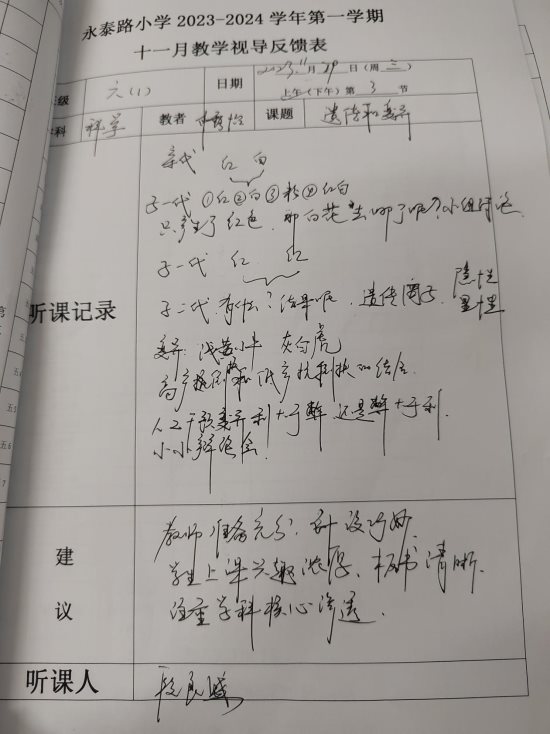 永泰路小学 2023-2024 学年第一学期
十一月教学视导反馈表
级 六(1) 日期 2023.11月29日(周三)
上午(下午)第3节
科 科学 教者 课题 遗传和变异
亲代 红 白
子一代 ①红②白③粉④红白
只产生了红色,那白花去哪了呢?小组讨论
子一代 红 红
子二代 有什么?结果呢 遗传因子 隐性
显性
听课记录
变异: 浅黄小牛 灰白虎
高产 低产抗 的结合
人工干预变异利大于弊 还是弊大于利.
小小辩论会.
建
议
教师准备充分,设计巧妙.
学生上课兴趣浓厚、板书清晰.
注重学科核心渗透.
听课人 段良